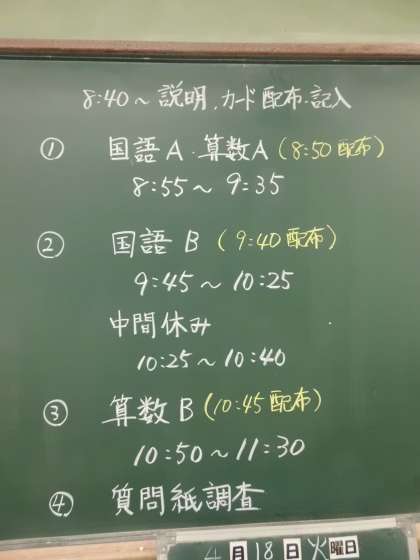 8:40～説明、カード配布・記入
① 国語A・算数A(8:50配布)
8:55～9:35
② 国語B (9:40配布)
9:45～10:25
中間休み
10:25～10:40
③ 算数B(10:45配布)
10:50～11:30
④ 質問紙調査
4月18日火曜日